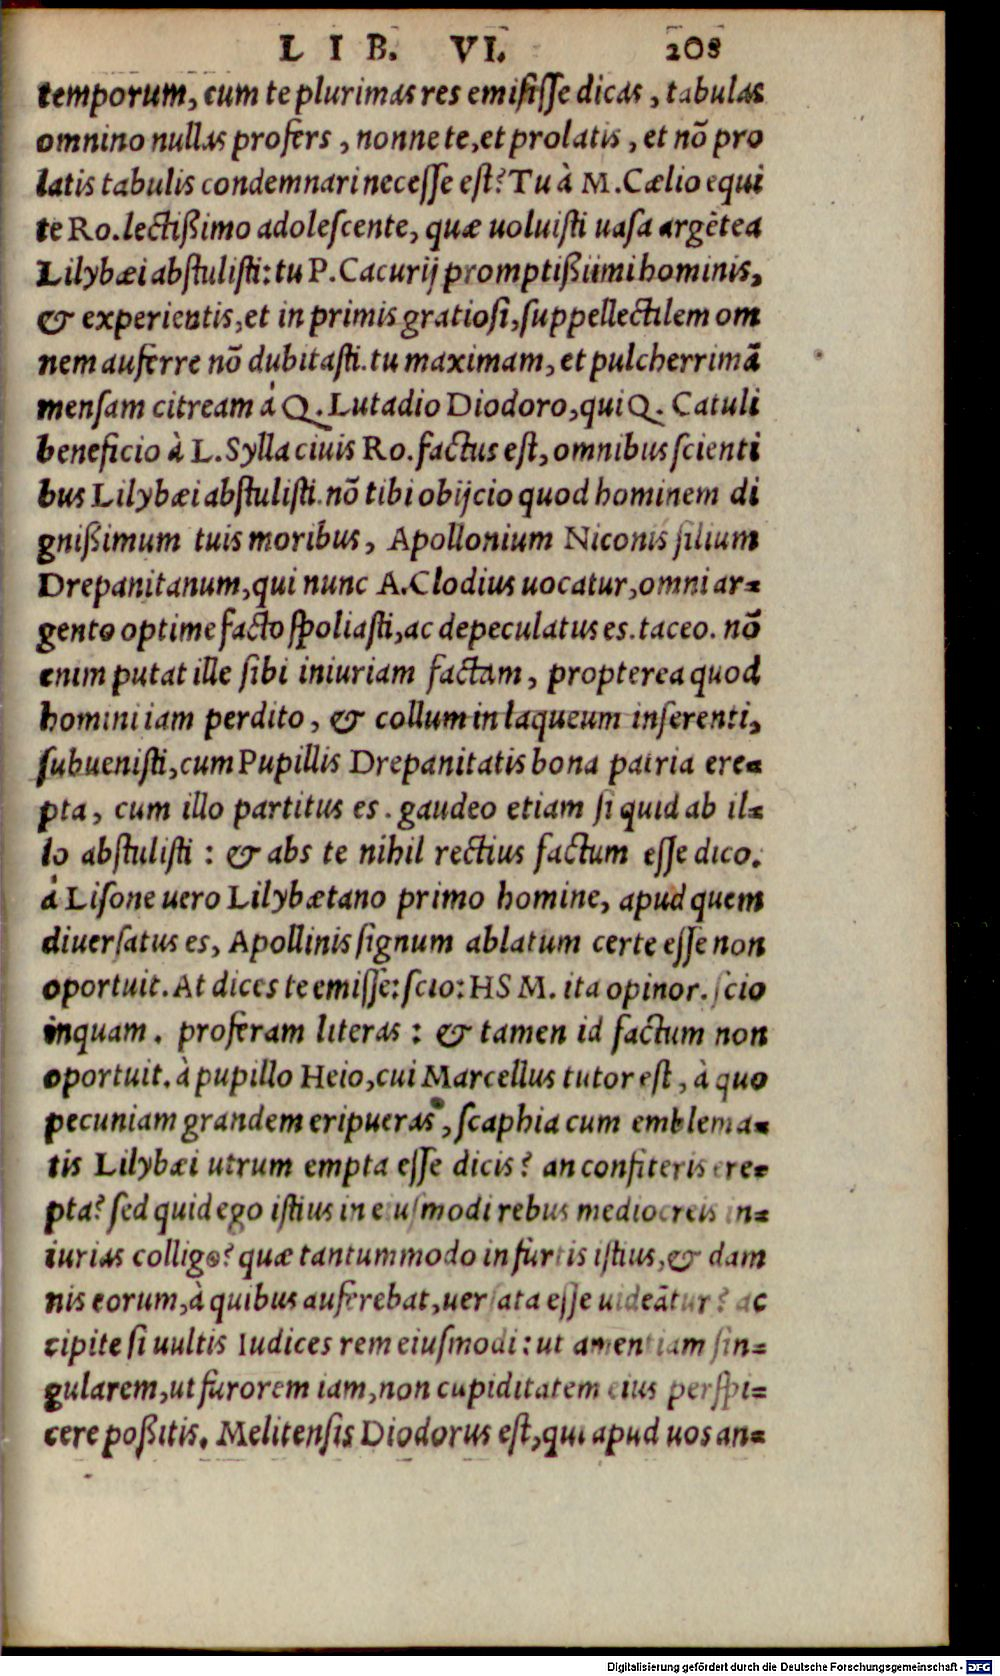 LIB. VI. 208
temporum, cum te plurimas res emisiſſe dicas, tabulas
omnino nullas profers, nonne te, et prolatis, et nõ pro
latis tabulis condemnari neceſſe eſt? Tu à M. Cælio equi
te Ro. lectißimo adoleſcente, quæ uoluiſti uaſa argẽtea
Lilybæi abſtuliſti: tu P. Cacurij promptißimi hominis,
& experientis, et in primis gratioſi, ſuppellectilem om
nem auferre nõ dubitaſti. tu maximam, et pulcherrimã
menſam citream á Q. Lutadio Diodoro, qui Q. Catuli
beneficio à L. Sylla ciuis Ro. factus eſt, omnibus ſcienti
bus Lilybæi abſtuliſti. nõ tibi obijcio quod hominem di
gnißimum tuis moribus, Apollonium Niconis filium
Drepanitanum, qui nunc A. Clodius uocatur, omni ar=
gento optime facto ſpoliaſti, ac depeculatus es. taceo. nõ
enim putat ille ſibi iniuriam factam, propterea quod
homini iam perdito, & collum in laqueum inſerenti,
ſubueniſti, cum Pupillis Drepanitatis bona patria ere=
pta, cum illo partitus es. gaudeo etiam ſi quid ab il=
lo abſtuliſti: & abs te nihil rectius factum eſſe dico.
á Liſone uero Lilybætano primo homine, apud quem
diuerſatus es, Apollinis ſignum ablatum certe eſſe non
oportuit. At dices te emiſſe: ſcio: HS M. ita opinor. ſcio
inquam. proferam literas: & tamen id factum non
oportuit. à pupillo Heio, cui Marcellus tutor eſt, à quo
pecuniam grandem eripueras, ſcaphia cum emblema=
tis Lilybæi utrum empta eſſe dicis? an confiteris ere=
pta? ſed quid ego iſtius in eiuſmodi rebus mediocreis in=
iurias colligo? quæ tantummodo in furtis iſtius, & dam
nis eorum, à quibus auferebat, uerſata eſſe uideãtur? ac
cipite ſi uultis Iudices rem eiuſmodi: ut amentiam ſin=
gularem, ut furorem iam, non cupiditatem eius perſpi=
cere poßitis. Melitenſis Diodorus eſt, qui apud uos an=
Digitalisierung gefördert durch die Deutsche Forschungsgemeinschaft - DFG